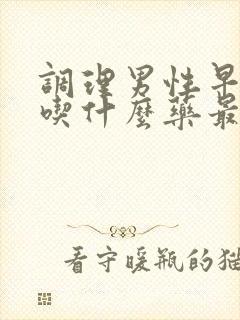 調理男性早
喫什麼藥最
看守暖瓶的猫